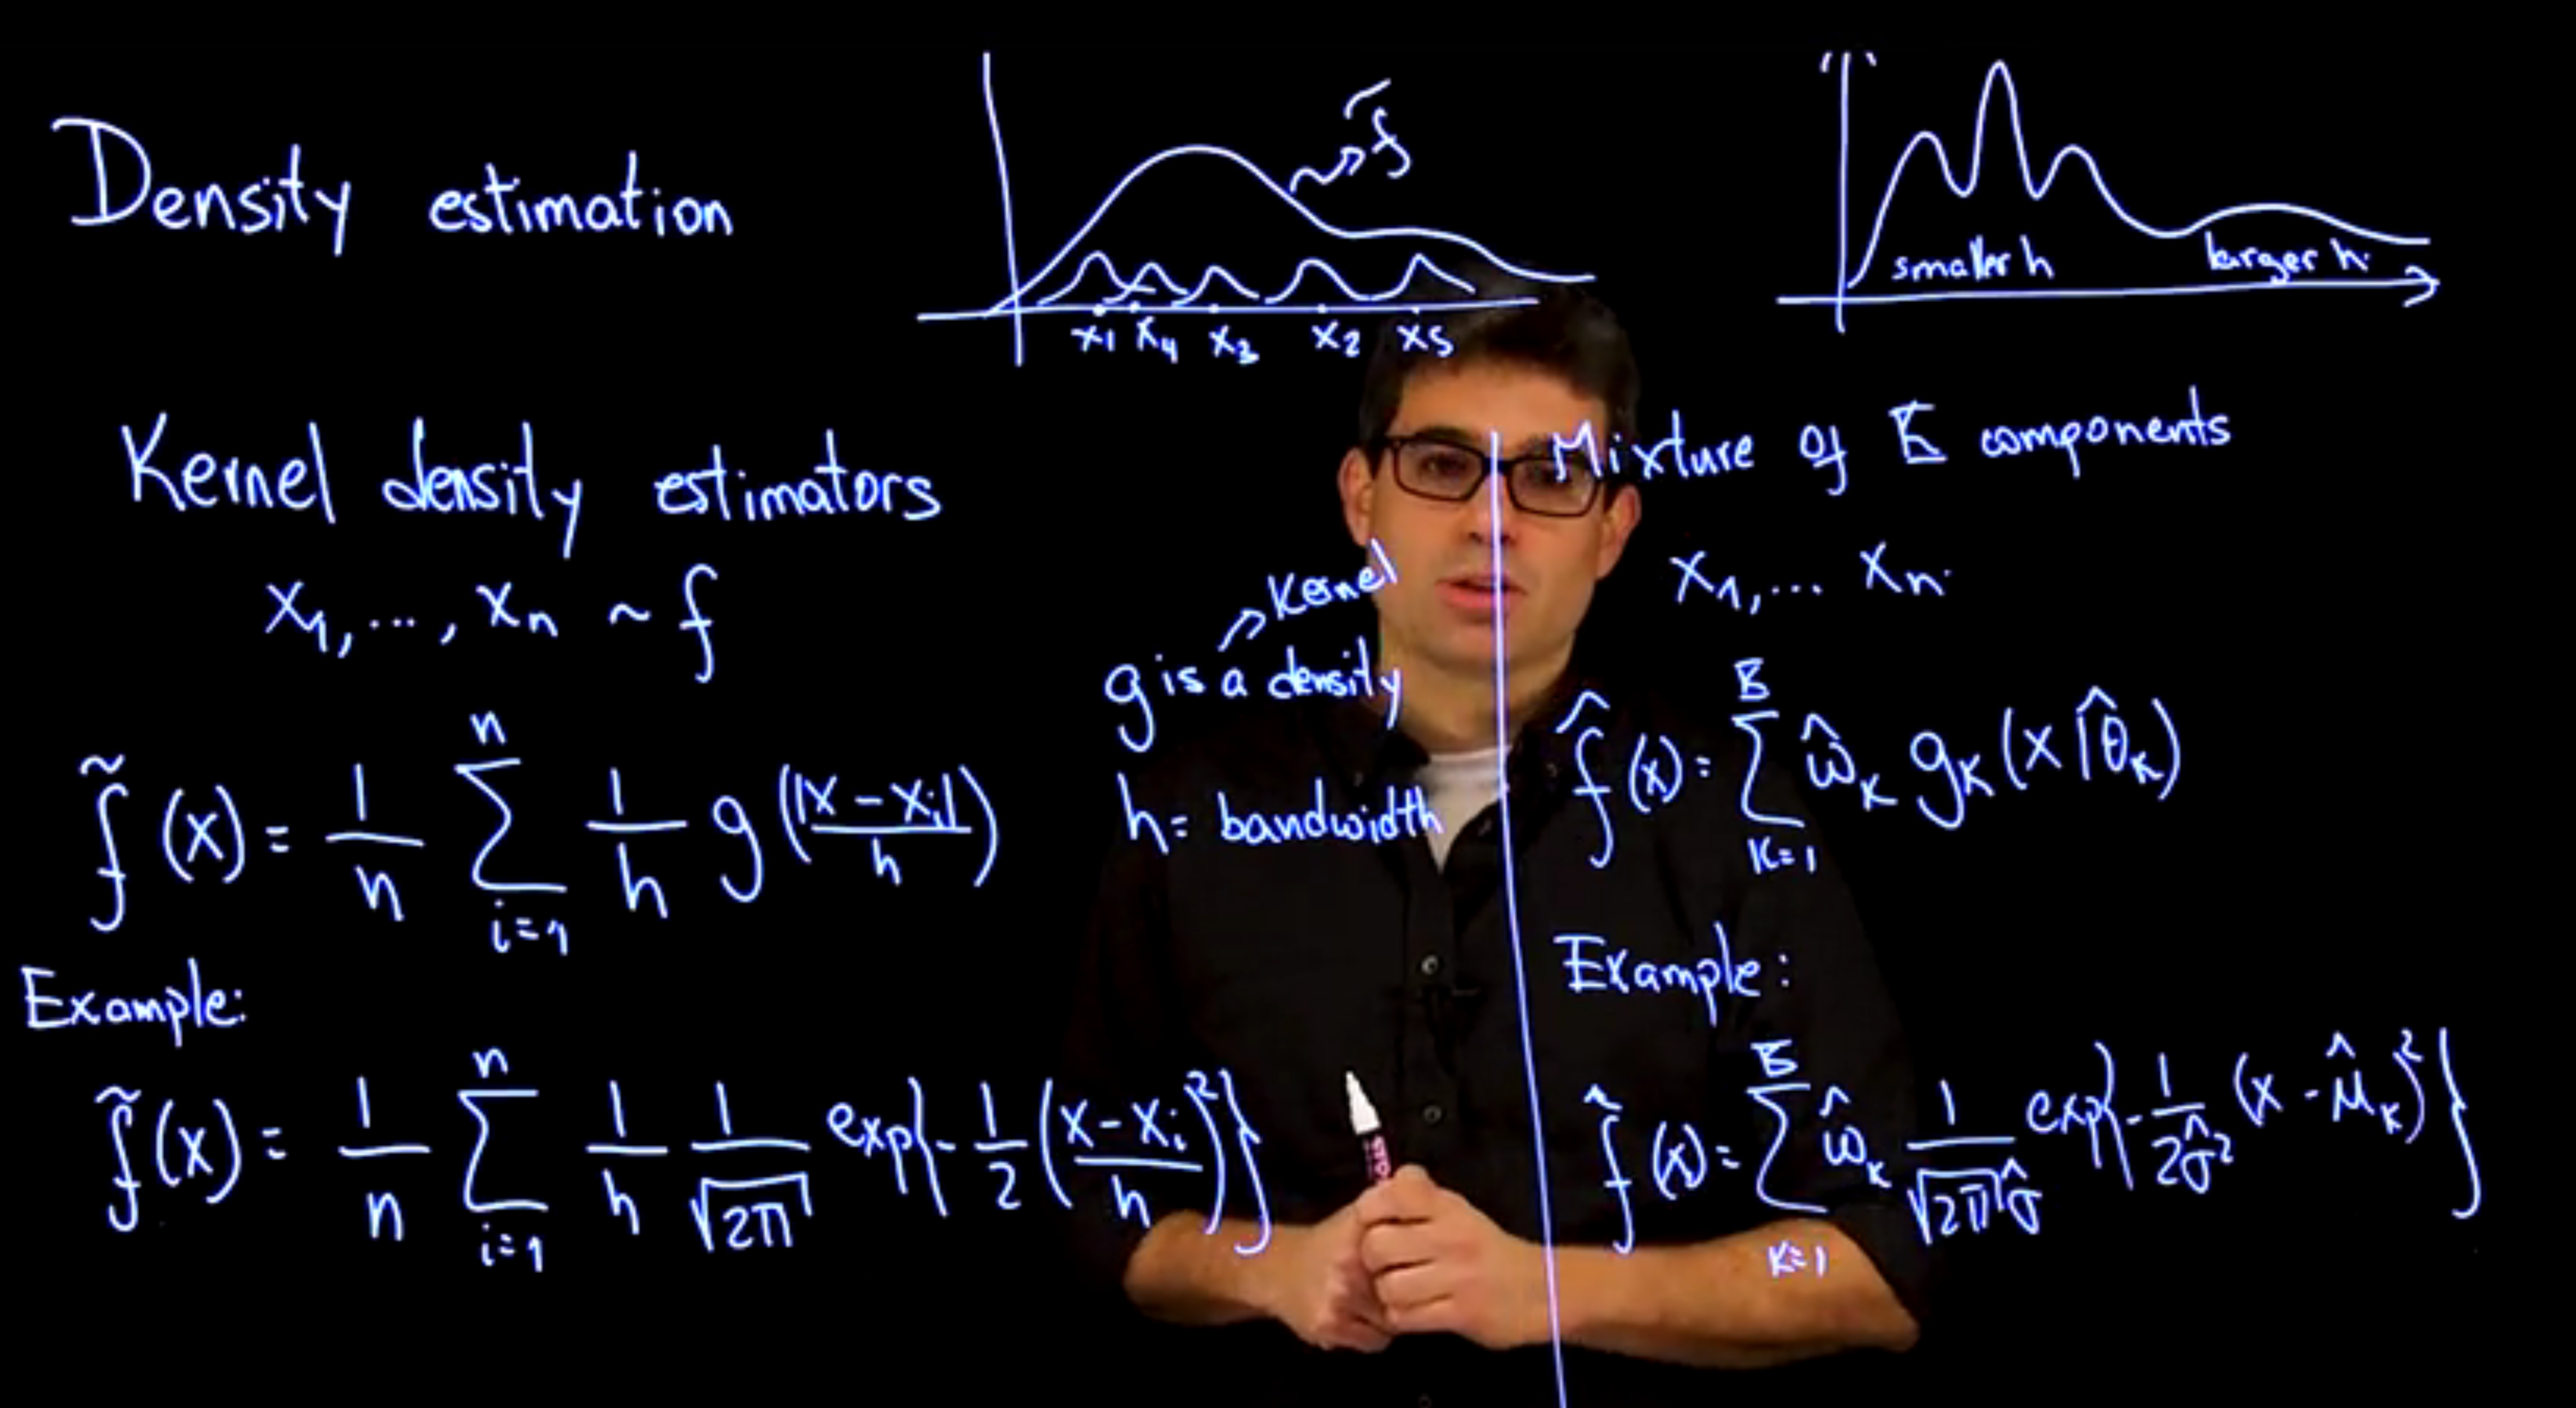 Density estimation
f̃
x1 x4 x3 x2 x5
smaller h
larger h
Kernel density estimators
x₁, ..., xₙ ~ f
Kernel
g is a density
h = bandwidth
f̃(x) = 1/n Σ_{i=1}^{n} 1/h g(|x - xᵢ|/h)
Example:
f̃(x) = 1/n Σ_{i=1}^{n} 1/h 1/√2π exp{-1/2 (x - xᵢ/h)²}
Mixture of K components
x₁, ... xₙ.
f̂(x) = Σ_{k=1}^{K} ω̂ₖ gₖ(x|θ̂ₖ)
Example:
f̂(x) = Σ_{k=1}^{K} ω̂ₖ 1/√2π σ̂ exp{-1/2σ̂² (x - μ̂ₖ)²}